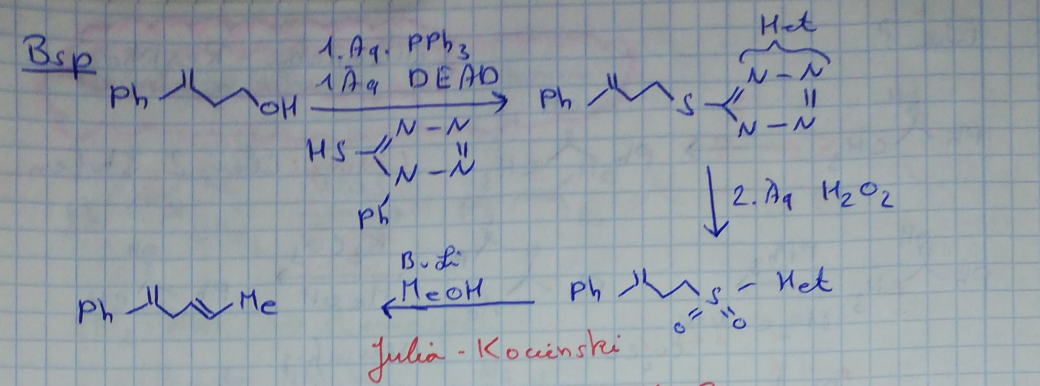 Bsp
Ph OH
1. Äq. PPh3
1 Äq DEAD
HS N-N N-N Ph
Het
Ph S N-N N-N
2. Äq H2O2
Ph S - Het
O O
BuLi
MeOH
Ph Me
Julia - Kocienski